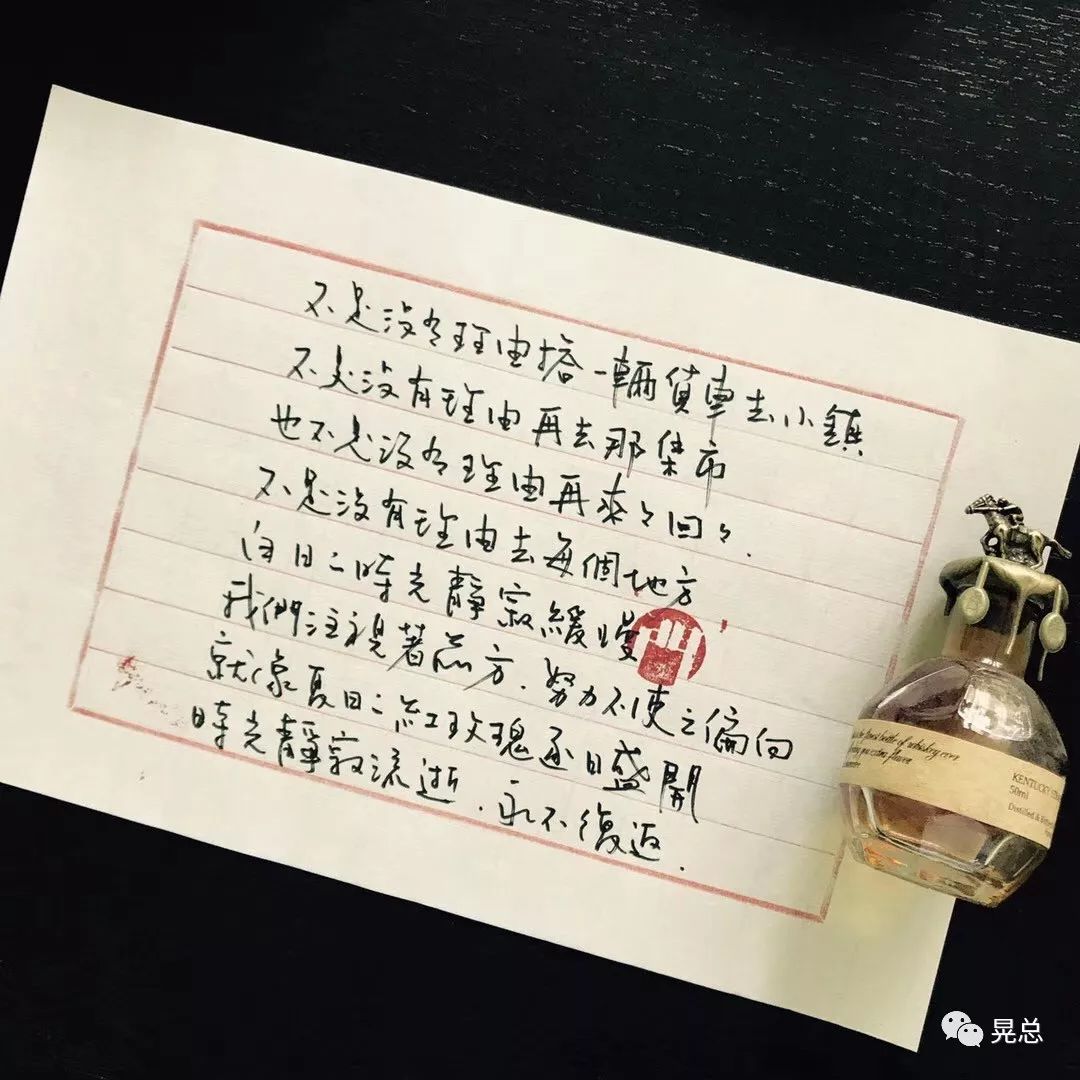 不是沒有理由搭一輛貨車去小鎮
不是沒有理由再去那集市
也不是沒有理由再來々回々.
不是沒有理由去每個地方
白日二時光靜寂緩慢
我們注視著前方.努力不使之偏向
就像夏日二紅玫瑰逐日盛開
時光靜寂流逝.永不復返.
KENTUCKY
50ml
Distilled &
晃总